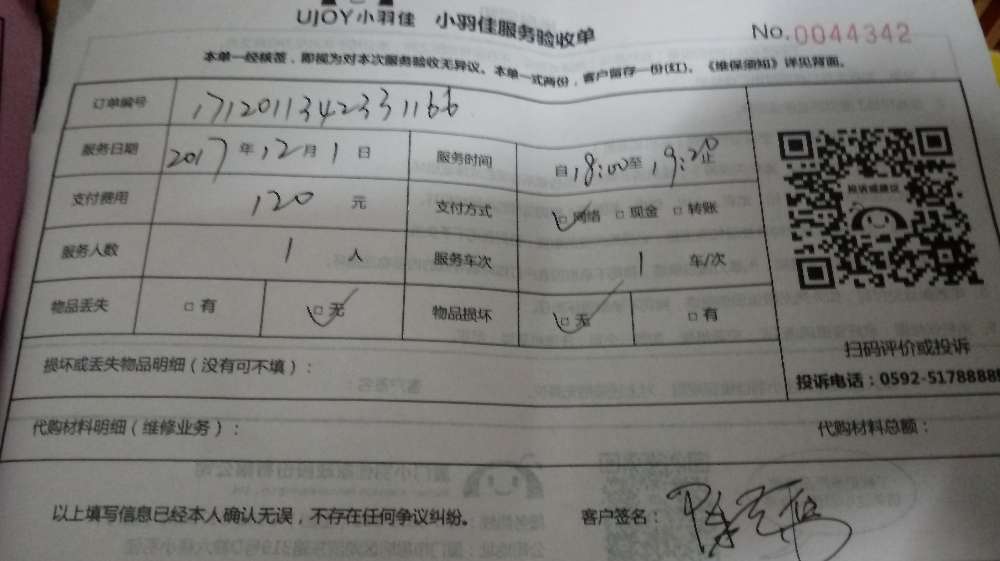 UJOY小羽佳 小羽佳服务验收单 No.0044342
本单一经核签，即视为对本次服务验收无异议。本单一式两份，客户留存一份(红)。《维保须知》详见背面。
订单编号 1712011342331166
服务日期 2017年12月1日 服务时间 自18:00至19:20止
支付费用 120元 支付方式 □网络 □现金 □转账
服务人数 1人 服务车次 1车/次
物品丢失 □有 □无 物品损坏 □无 □有
扫码评价或投诉
损坏或丢失物品明细（没有可不填）：
投诉电话：0592-5178888
代购材料明细（维修业务）： 代购材料总额：
以上填写信息已经本人确认无误，不存在任何争议纠纷。 客户签名：